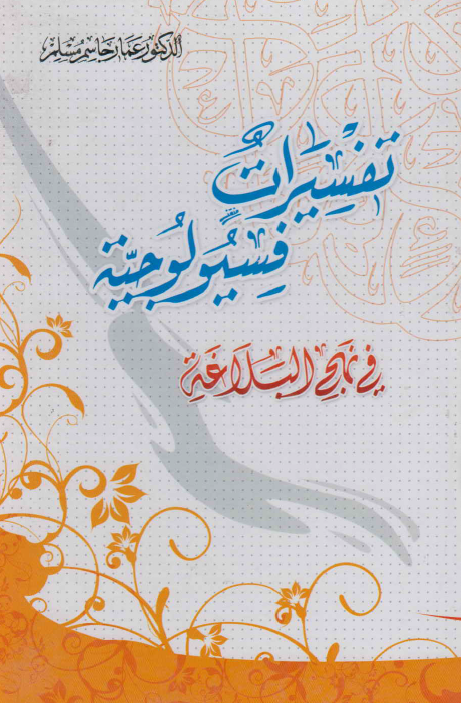 الدكتور عمار جاسم مسلم
تَفْسِيرَاتٌ
فِسيُولُوجيّة
في نَهجِ البَلَاغَةِ